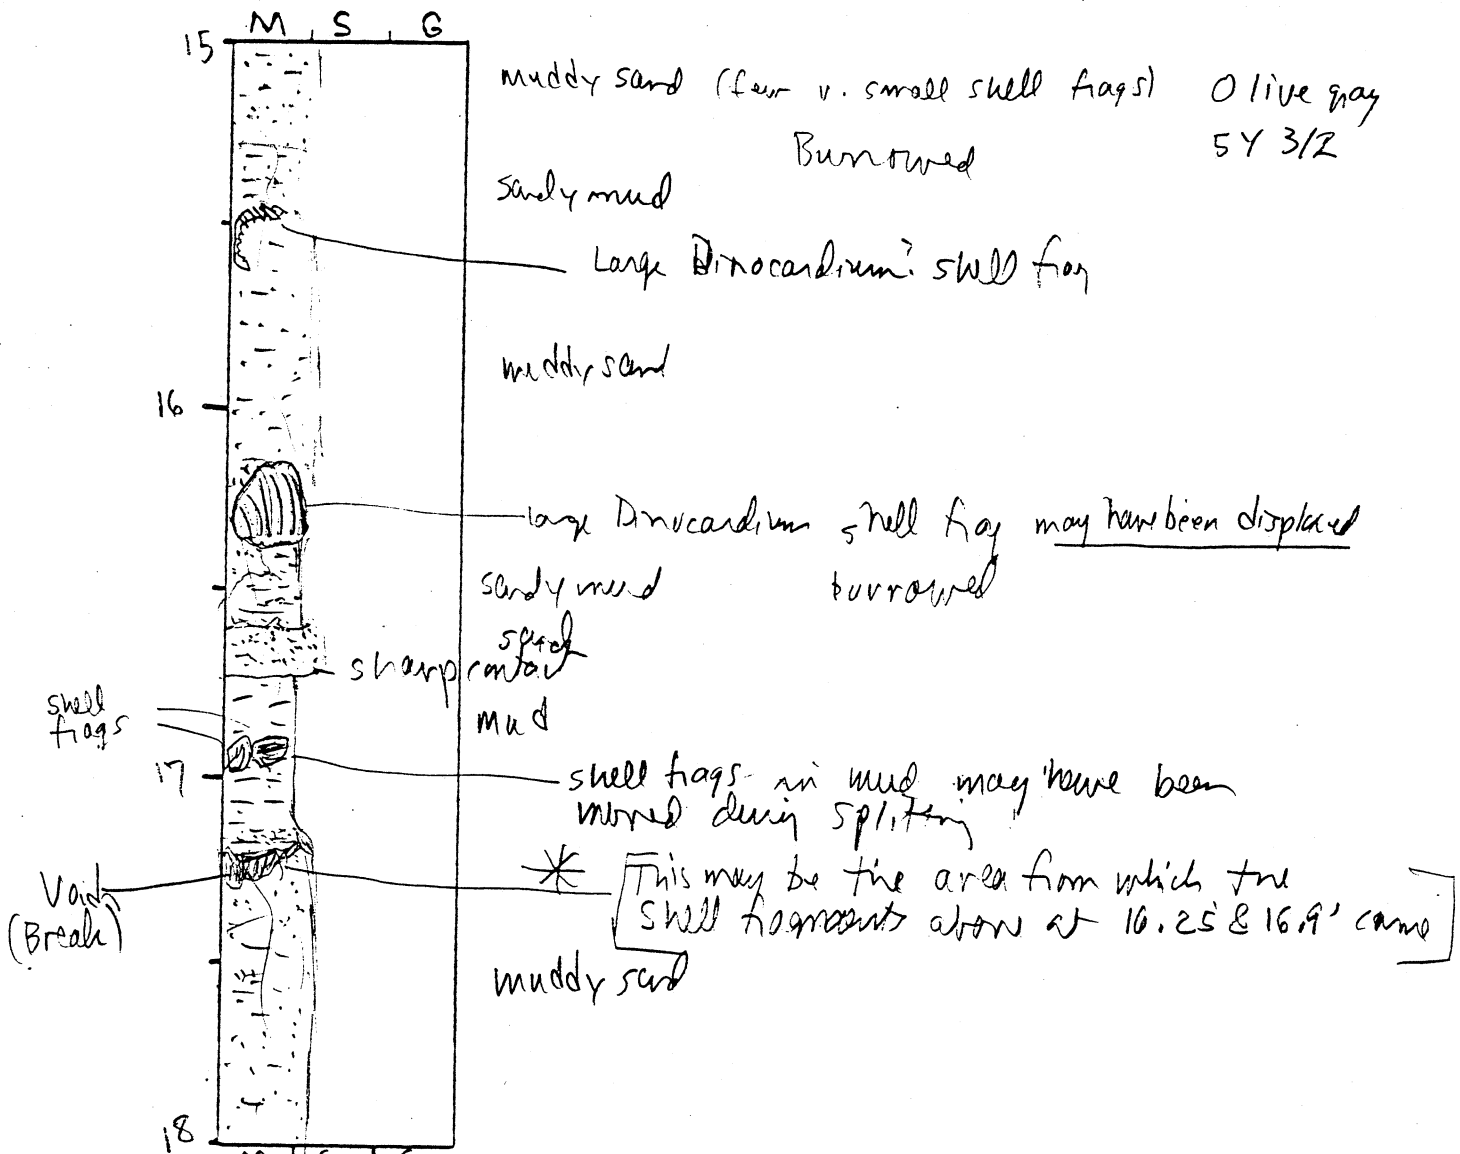 M S G
15
muddy sand (few v. small shell frags) Olive gray
Burrowed 5Y 3/2
sandy mud
Large Dinocardium? shell frag
muddy sand
16
large Dinocardium shell frag may have been displaced
sandy mud burrowed
sand
sharp contact
shell
frags
mud
17
shell frags in mud may have been
moved during spliting
Void
(Break)
* [This may be the area from which the
shell fragments above at 16.25 & 16.9' came]
muddy sand
18
M S G